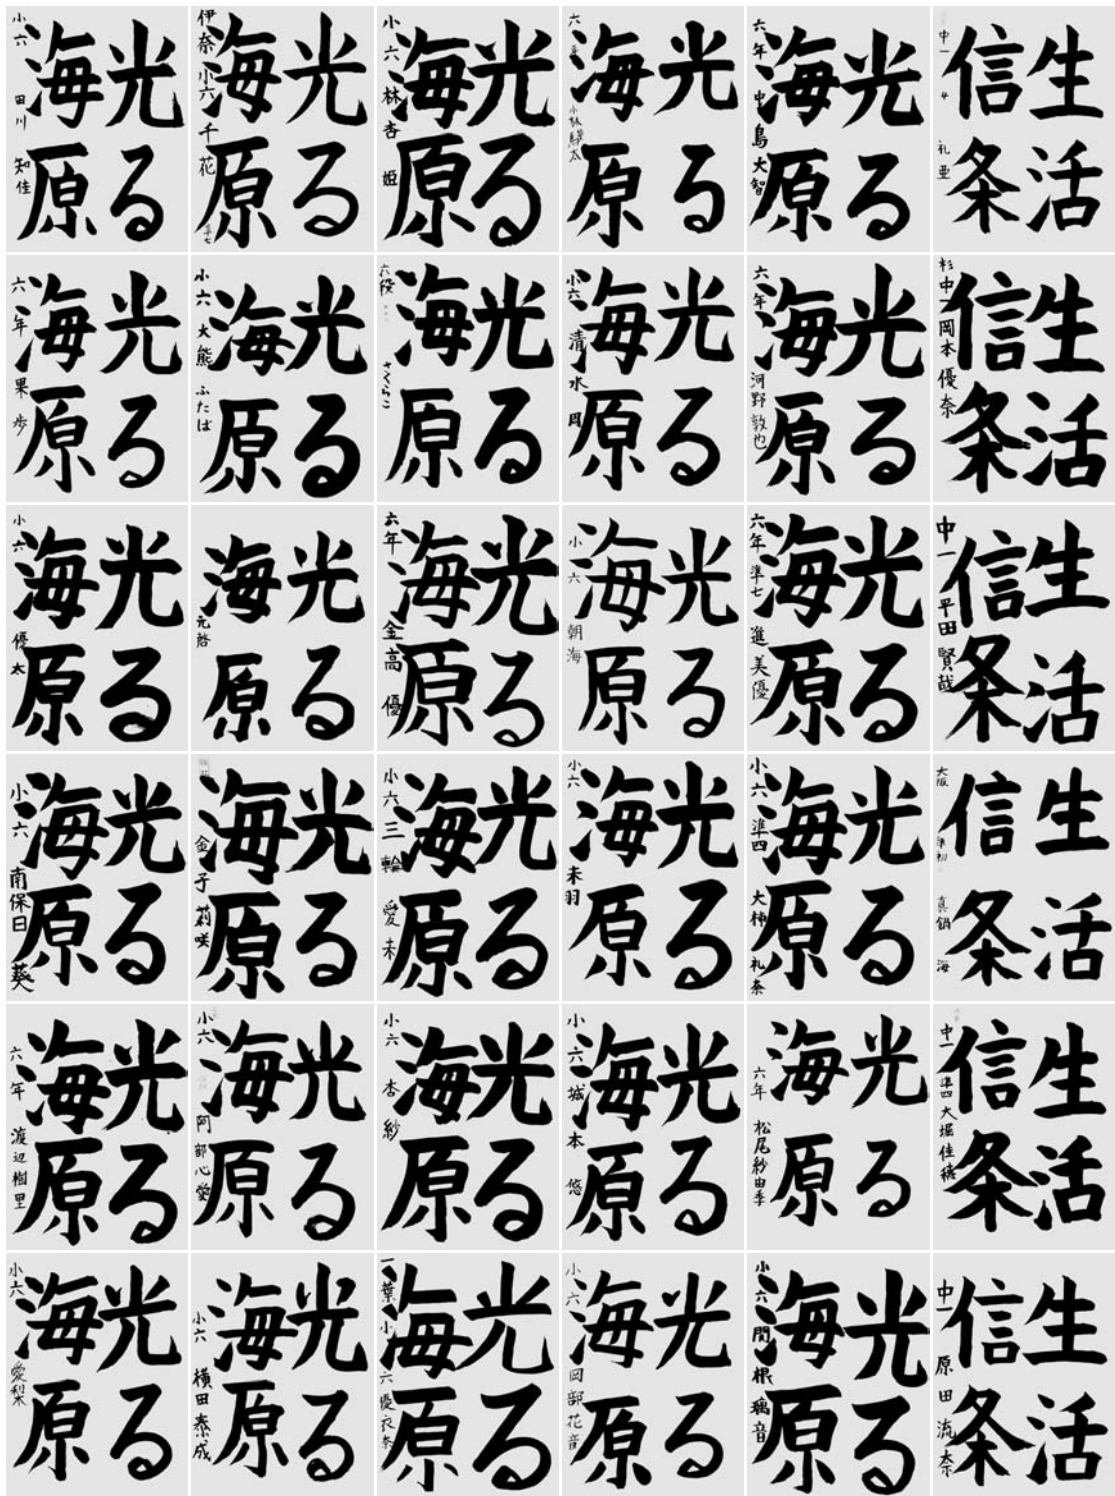 光る
海原
小六 田川 知佳
光る
海原
伊奈 小六 千花
光る
海原
小六 林 杏姫
光る
海原
六
光る
海原
六年 中島 大智
生活
信条
中一 礼亜
光る
海原
六年 果歩
光る
海原
小六 大熊 ふたば
光る
海原
さくらこ
光る
海原
小六 清水
光る
海原
六年 河野 敦也
生活
信条
杉 中一 岡本 優奈
光る
海原
小六 優太
光る
海原
元啓
光る
海原
六年 金高 優
光る
海原
小六 朝海
光る
海原
六年 準七 進 美優
生活
信条
中一 平田 賢哉
光る
海原
小六 南保日 葵
光る
海原
金子 莉咲
光る
海原
小六 三輪 愛未
光る
海原
小六 未羽
光る
海原
小六 準四 大柿 礼奈
生活
信条
大阪 準初 真鍋 海
光る
海原
六年 渡辺 樹里
光る
海原
小六 阿部 心愛
光る
海原
小六 杏紗
光る
海原
小六 城本 悠
光る
海原
六年 松尾 紗由季
生活
信条
中一 準四 大堀 佳穂
光る
海原
小六 愛梨
光る
海原
小六 横田 泰成
光る
海原
一葉 小六 優衣奈
光る
海原
小六 岡部 花音
光る
海原
小六 関根 璃音
生活
信条
中一 原田 流奈